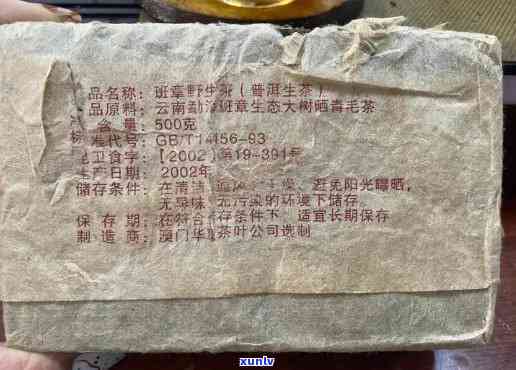 品名称：班章野生茶（普洱生茶）
品原料：云南勐海班章生态大树晒青毛茶
含量：500克
标准代号：GB/T14456-93
卫食字：【2002】第19-391号
生产日期：2002年
储存条件：在清洁、通风、干燥、避免阳光曝晒，
无异味、无污染的环境下储存。
保存期：在符合 存条件下 适宜长期保存
制造商：澳门华 茶叶公司选制
xunlv